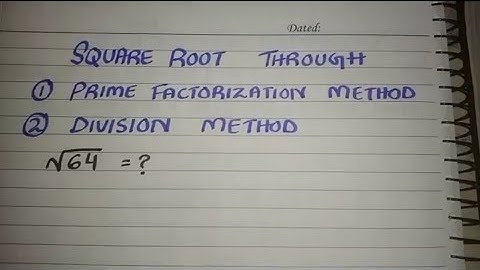 Dated:
SQUARE ROOT THROUGH
① PRIME FACTORIZATION METHOD
② DIVISION METHOD
√64 = ?